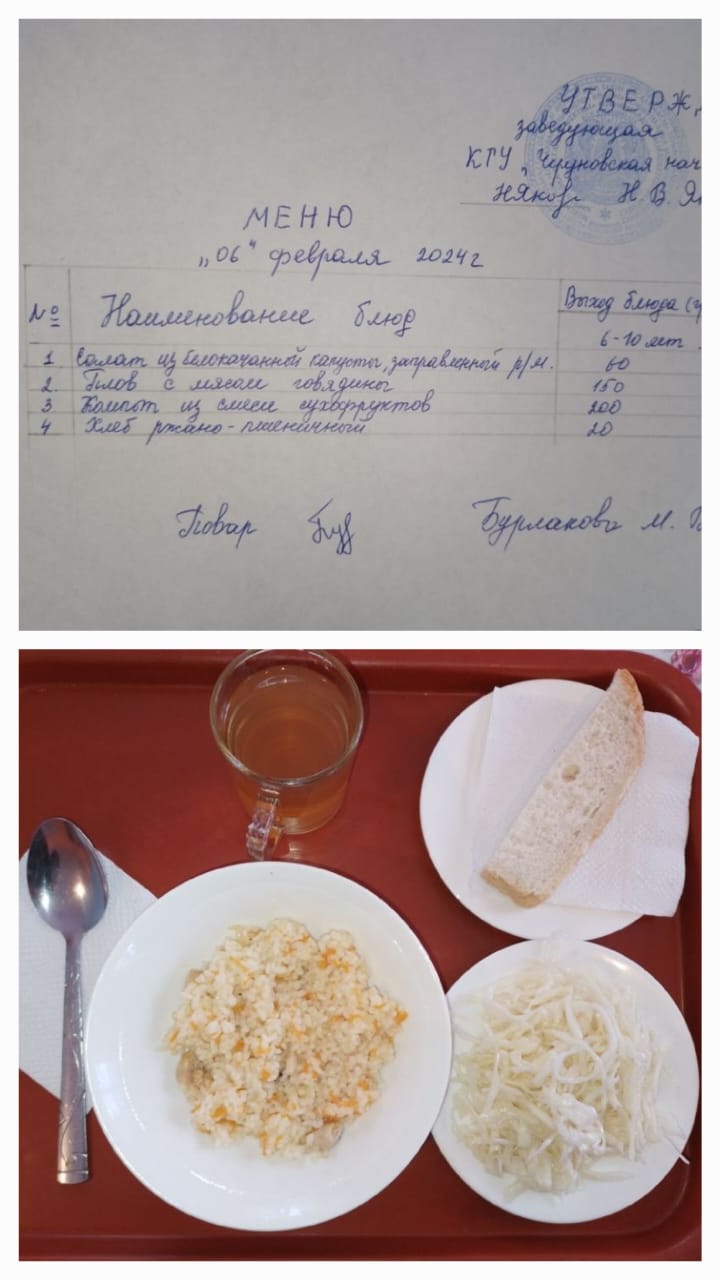 УТВЕРЖ
заведующая
КГУ „Черуновская нач
Н. В. Як
МЕНЮ
„06“ февраля 2024г
№ Наименование блюд Выход блюда (г
6-10 лет
1 Салат из белокачанной капусты, заправленный р/м. 60
2. Плов с мясом говядины 150
3. Компот из смеси сухофруктов 200
4 Хлеб ржано-пшеничный 20
Повар Бурлакова М.